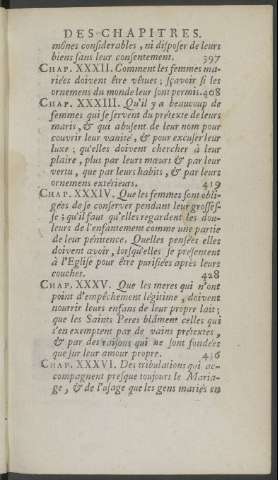 DES CHAPITRES.
mônes considerables, ni disposer de leurs
biens sans leur consentement. 397
CHAP. XXXII. Comment les femmes ma-
riées doivent être vêtues; sçavoir si les
ornemens du monde leur sont permis. 408
CHAP. XXXIII. Qu'il y a beaucoup de
femmes qui se servent du prétexte de leurs
maris, & qui abusent de leur nom pour
couvrir leur vanité, & pour excuser leur
luxe; qu'elles doivent chercher à leur
plaire, plus par leurs mœurs & par leur
vertu, que par leurs habits, & par leurs
ornemens extérieurs. 419
CHAP. XXXIV. Que les femmes sont obli-
gées de se conserver pendant leur grosses-
se; qu'il faut qu'elles regardent les dou-
leurs de l'enfantement comme une partie
de leur pénitence. Quelles pensées elles
doivent avoir, lorsqu'elles se presentent
à l'Eglise pour être purifiées après leurs
couches. 428
CHAP. XXXV. Que les meres qui n'ont
point d'empêchement légitime, doivent
nourrir leurs enfans de leur propre lait;
que les Saints Peres blâment celles qui
s'en exemptent par de vains prétextes,
& par des raisons qui ne sont fondées
que sur leur amour propre. 436
CHAP. XXXVI. Des tribulations qui ac-
compagnent presque toujours le Maria-
ge, & de l'usage que les gens mariés en